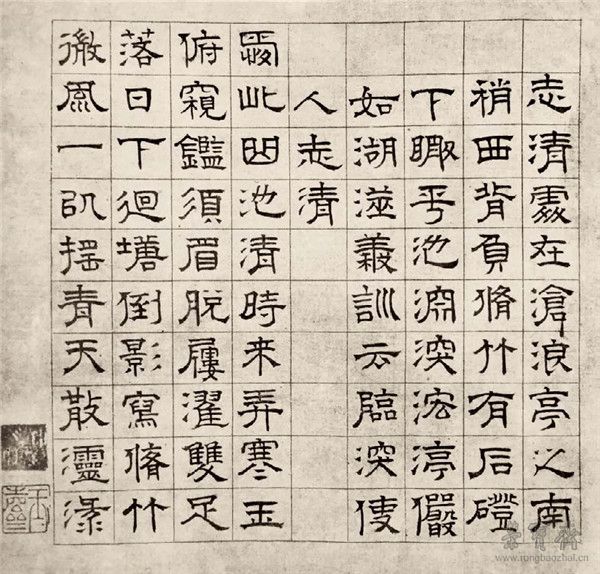 志清處在滄浪亭之南
稍西背負脩竹有石磴
下瞰平池淵深浤渟儼
如湖澨義訓云臨深使
人志清
愛此曲池清時來弄寒玉
俯窺鑑須眉脫屨濯雙足
落日下迴塘倒影寫脩竹
微風一㠯搖青天散靈淥
榮寶齋
www.rongbaozhai.cn